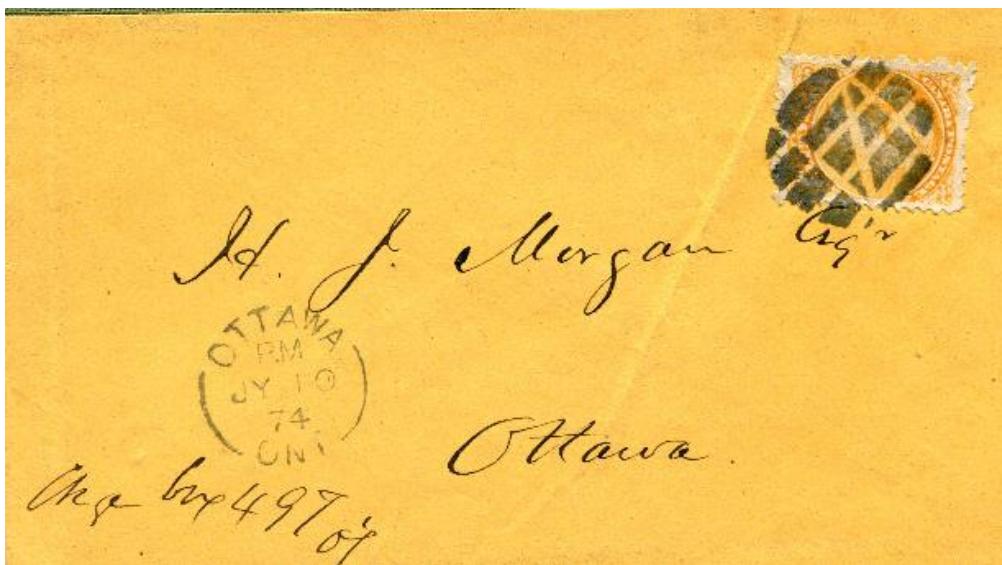 H. J. Morgan Esq'r
OTTAWA
PM
JY 10
74
ONT
Ottawa.
Chge box 497